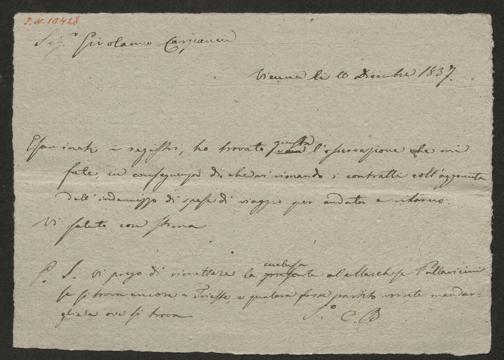 J.N. 10428
Sig.r Girolamo Carpanin
Vienna li 10 Dicembre 1837.
Esaminati i registri, ho trovato giusta l'osservazione che mi
fate, in conseguenza di che vi rimando i contratti coll'aggiunta
dell'indennizzo di spese di viaggio per andata e ritorno.
Vi saluto con stima
P. S. Vi prego di rimettere la inclusa al Marchese Pallavicini
se si trova ancora a Trieste, e qualora fosse partito vorrete mandar-
gliela ove si trova
C. B